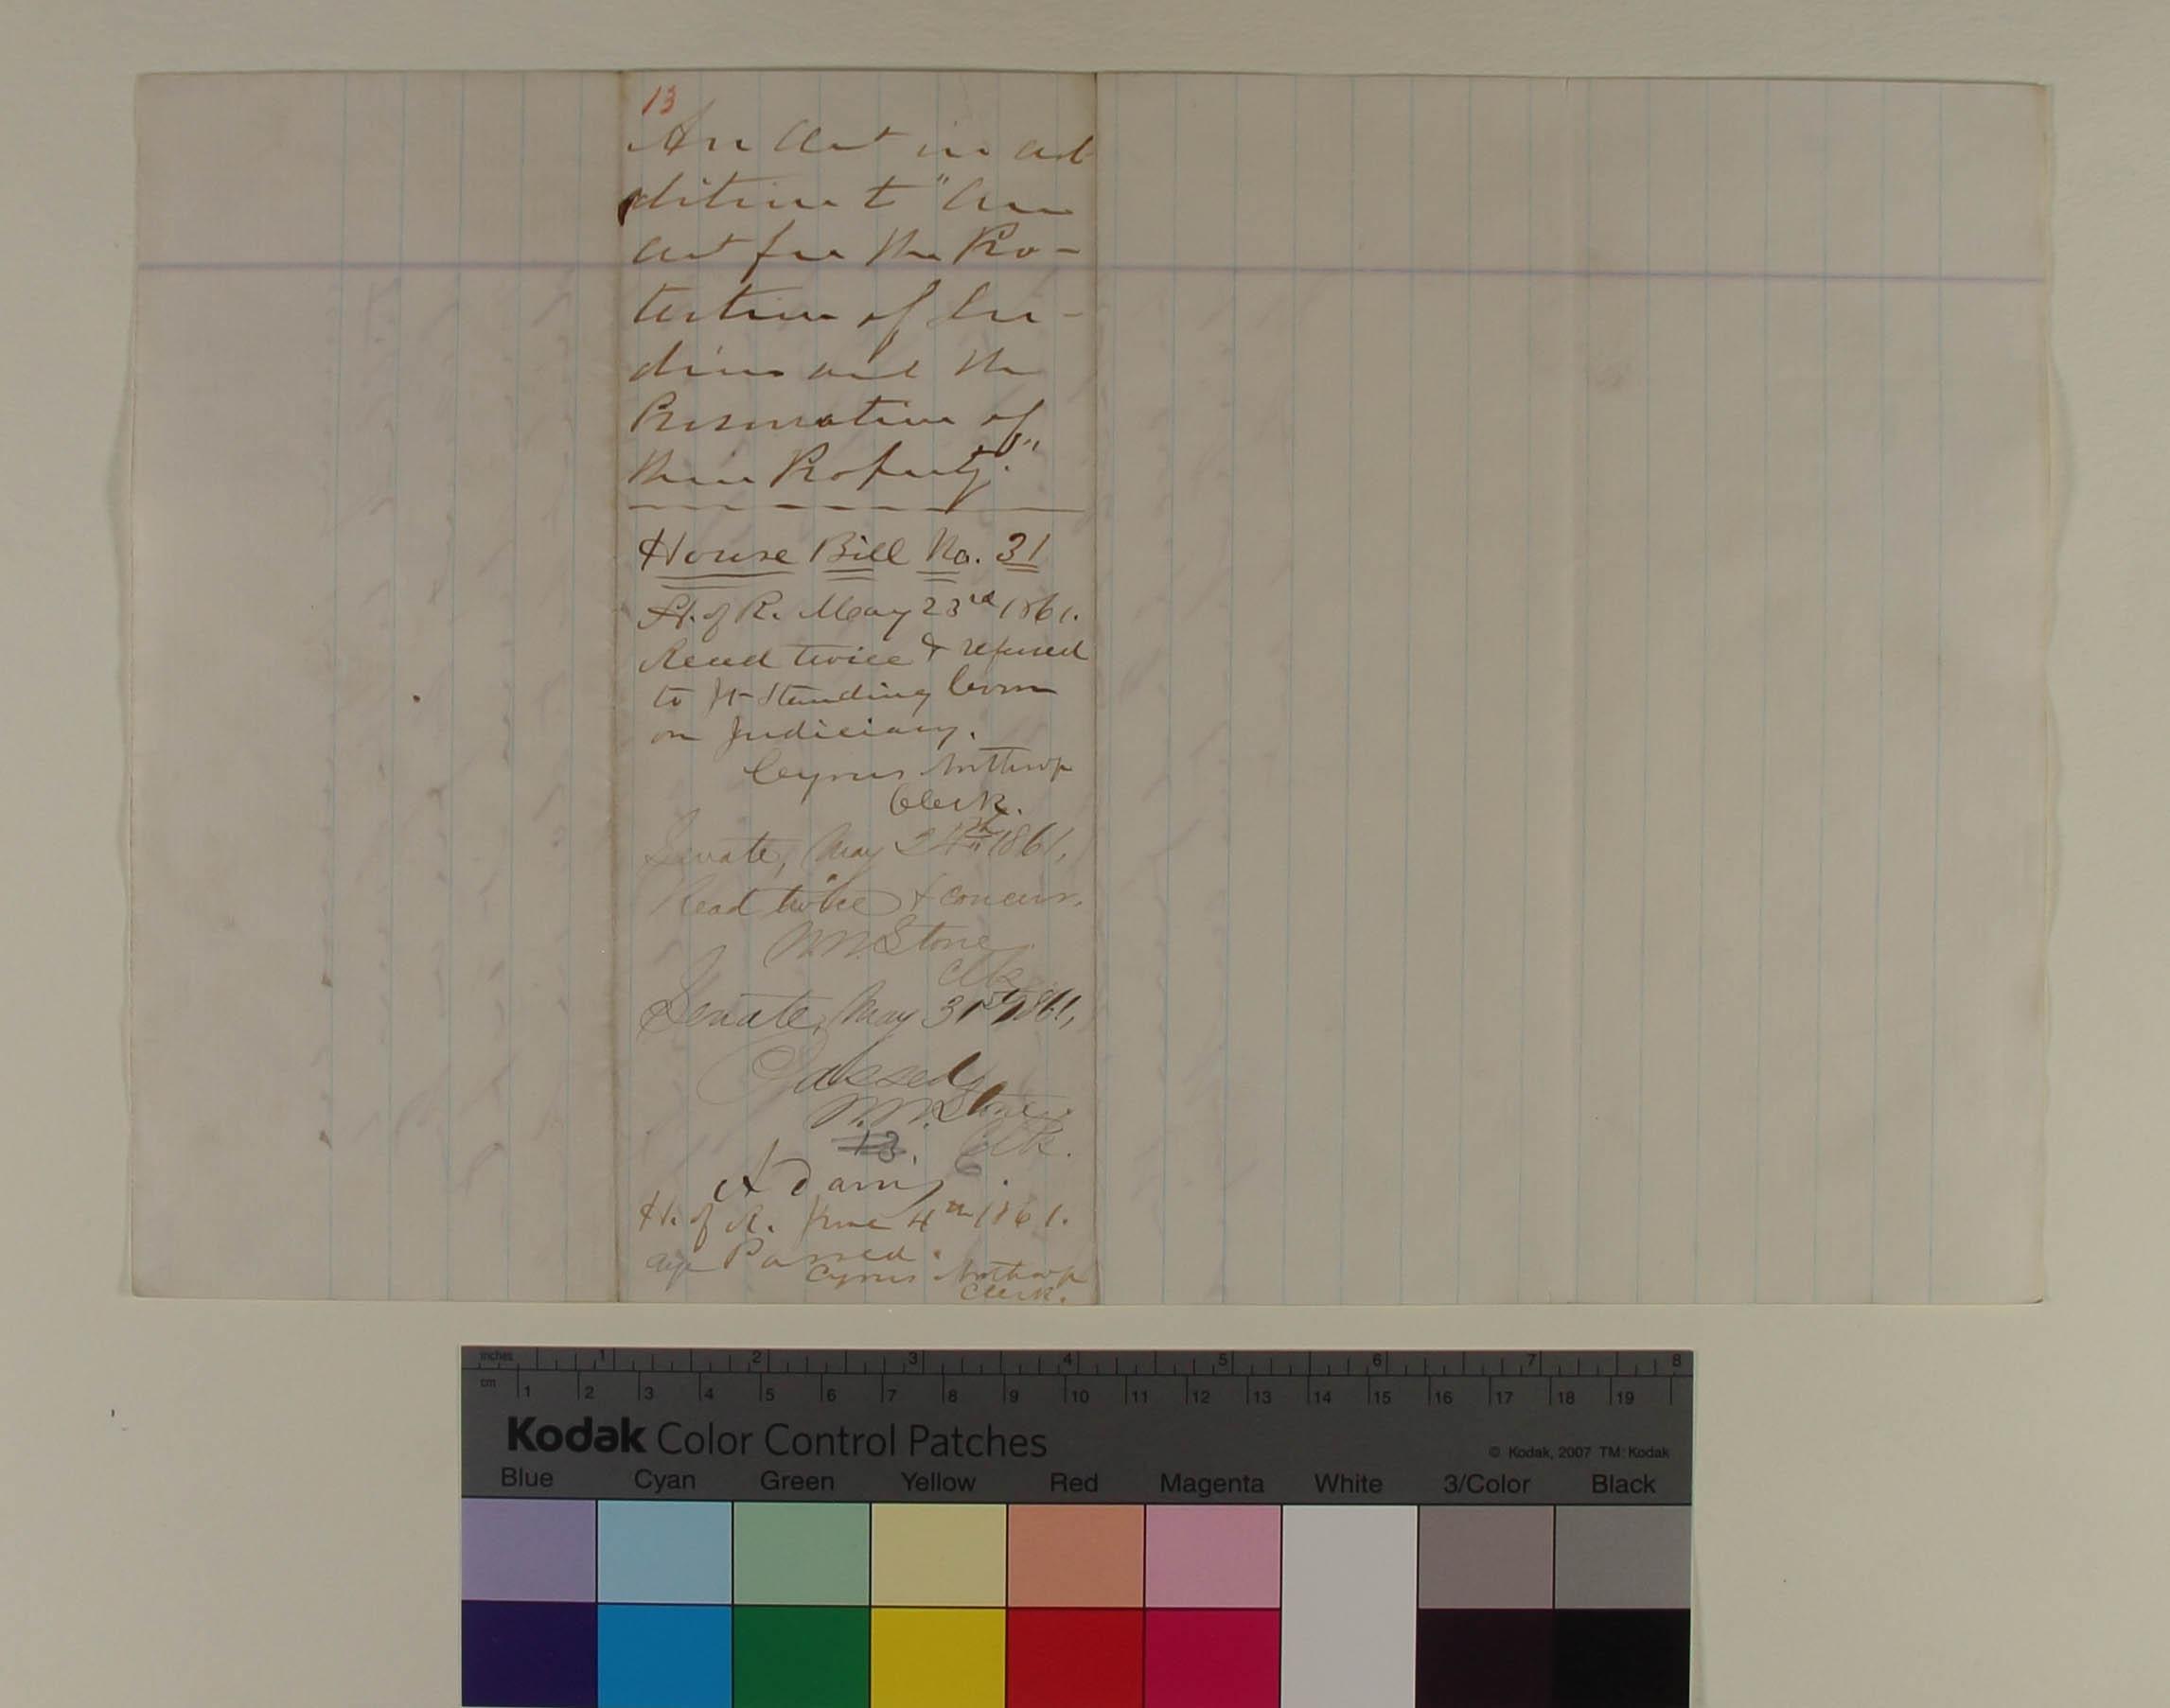 13
An Act in ad
dition to "An
act for the Pro-
tection of In-
dians and the
Preservation of
their Property."
House Bill No. 31
H. of R. May 23rd 1861.
Read twice & referred
to Jt Standing Com
on Judiciary.
Cyrus Northrop
Clerk.
Senate, May 24th 1861,
Read twice & concur.
Stone
Clk
Senate, May 31st 1861,
Passed
Stone
13. Clk.
Adams
H. of R. June 4th 1861.
Passed.
Cyrus Northrop
Clerk.
inches 1 2 3 4 5 6 7 8
cm 1 2 3 4 5 6 7 8 9 10 11 12 13 14 15 16 17 18 19
Kodak Color Control Patches
© Kodak, 2007 TM: Kodak
Blue Cyan Green Yellow Red Magenta White 3/Color Black